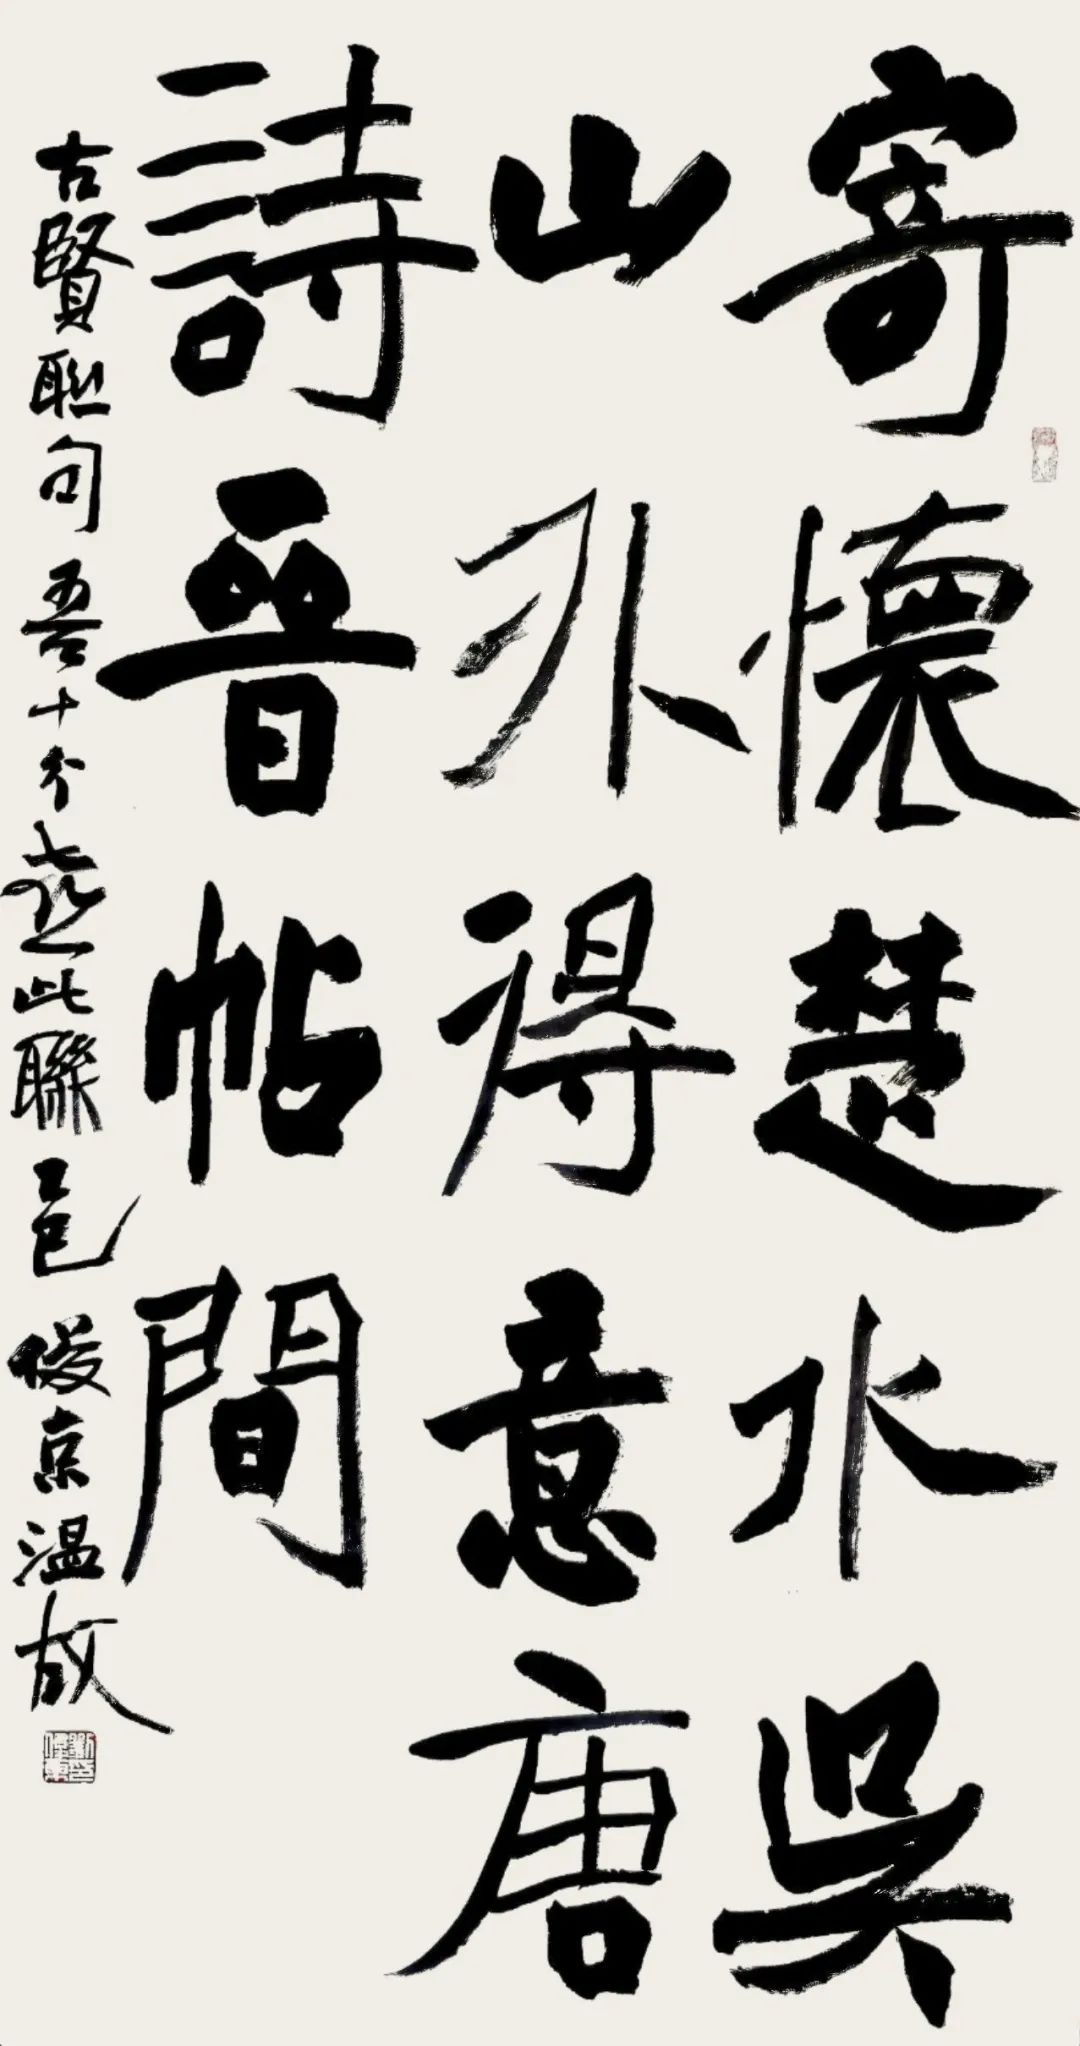 寄懷楚水吳
山外得意唐
詩晉帖間
古賢聯句吾十分喜此聯己邑俊京温故